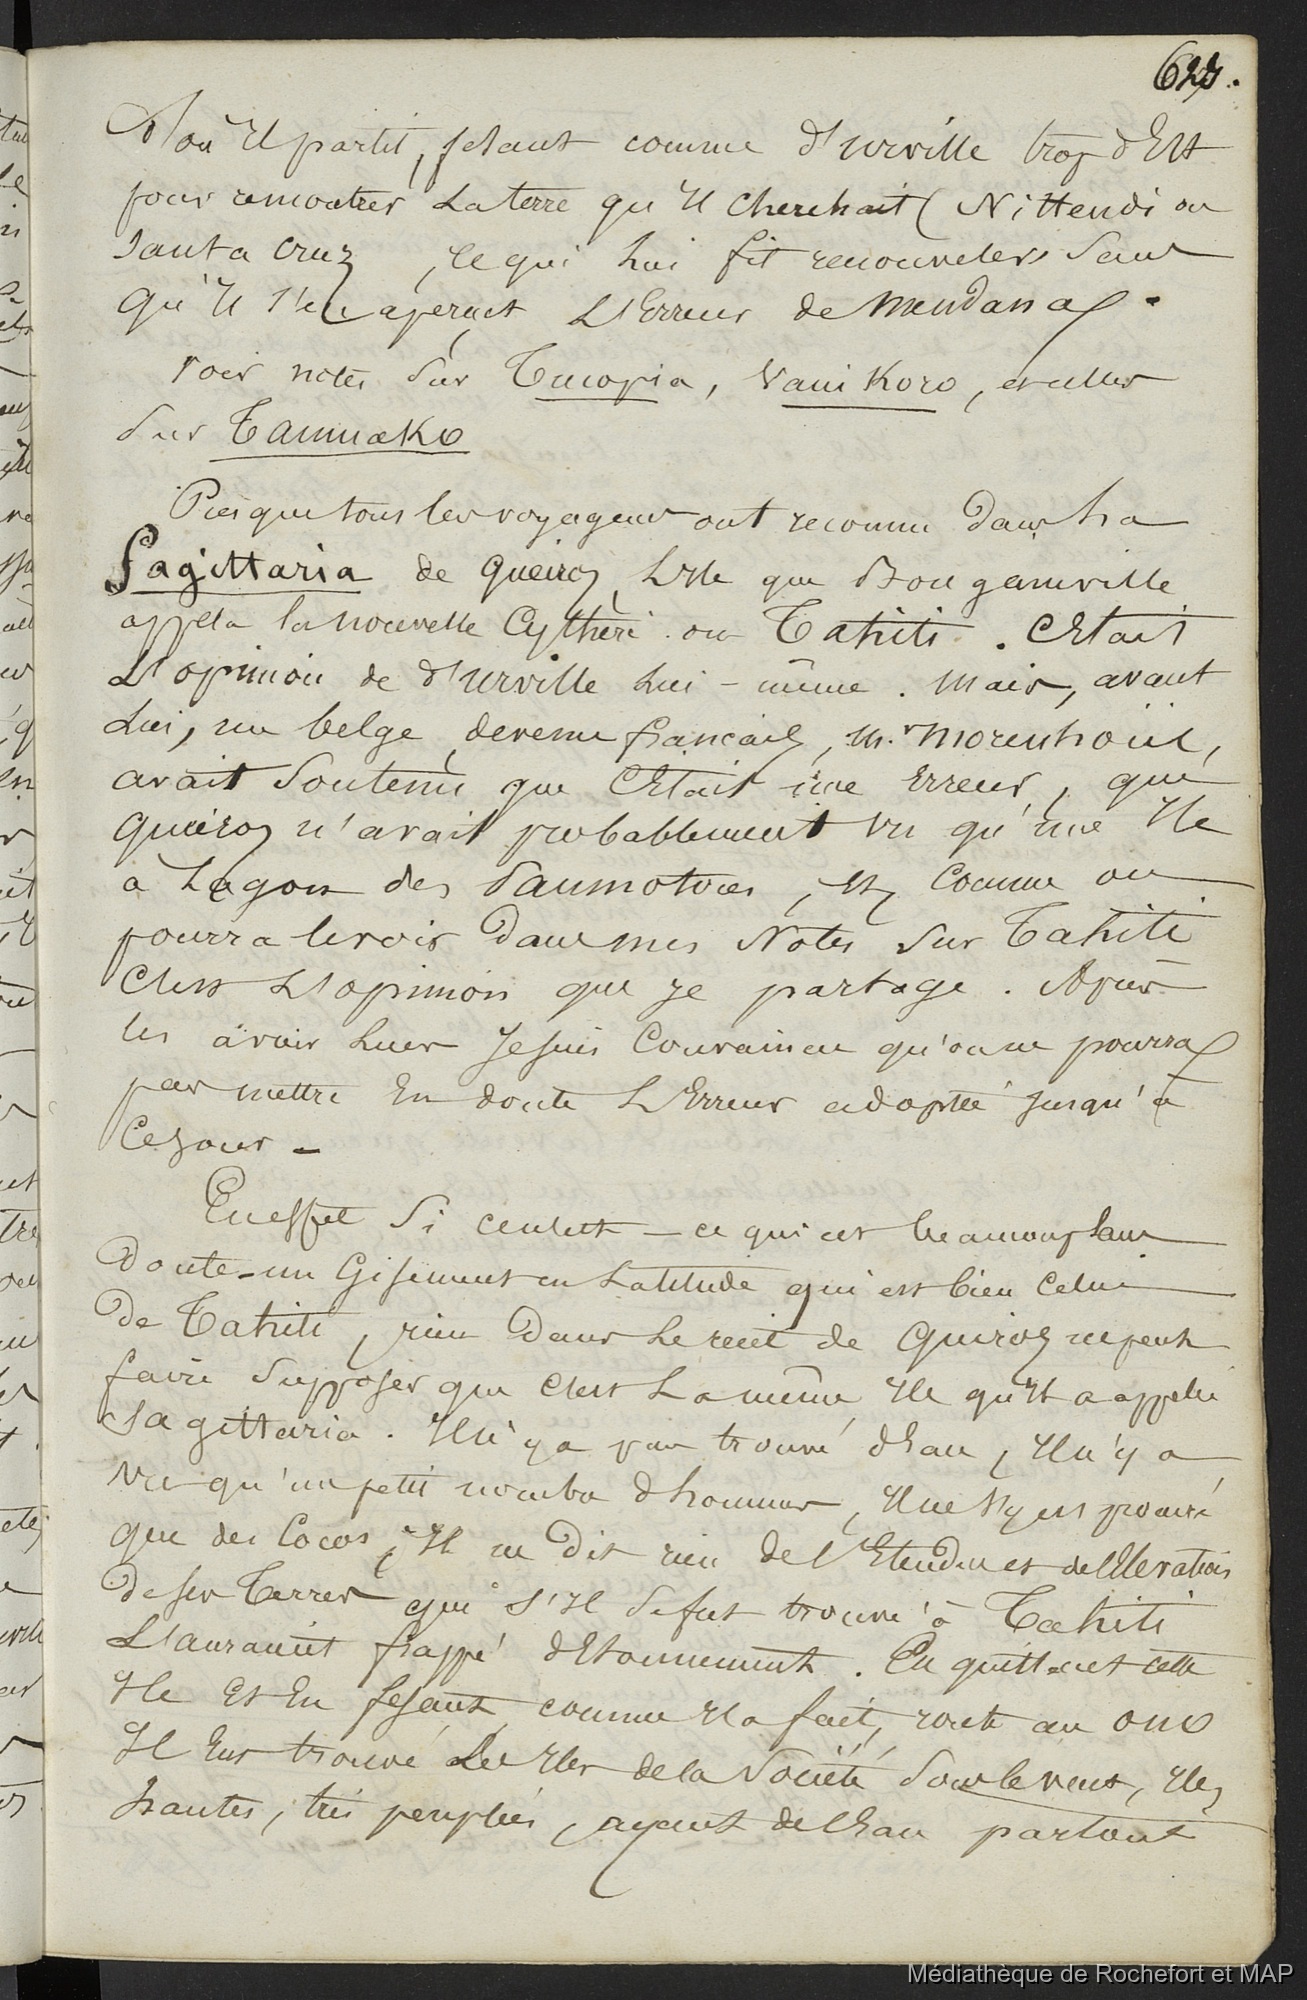 D'où Il partit, fesant comme d'urville trop d'Est
pour rencontrer La terre qu'Il cherchait (Nittendi ou
Santa Cruz, ce qui Lui fit renouveler sans
qu'Il s'en aperçut L'Erreur de Mendana.
voir notes sur Tucopia, Vanikoro, et celles
sur Taumako
Presque tous les voyageurs ont reconnu dans La
Sagittaria de Queiroz L'Ile que Bougainville
appela la nouvelle Cythère ou Tahiti. C'Etait
L'opinion de d'Urville Lui-même. Mais, avant
Lui, un belge devenu français, M. Morenhoüt,
avait soutenu que C'Etait une Erreur, que
Queiroz n'avait probablement vu qu'une Ile
à Lagon des Paumotous, Et, Comme on
pourra le voir dans mes Notes sur Tahiti
C'est L'opinion que Je partage. Après
les avoir Lues Je suis Convaincu qu'on ne pourra
pas mettre En doute L'Erreur adoptée jusqu'à
Ce Jour -
En effet si ceulest - ce qui est beaucoup sans
doute - un Gisement en Latitude qui est bien Celui
De Tahiti, rien Dans Le recit de Quiroz ne peut
faire supposer que C'est La même Ile qu'Il a appelée
Sagittaria. Il n'y a pas trouvé d'Eau, Il n'y a
vu qu'un petit nombre d'hommes, Il ne s'y est procuré
que des Cocos, Il ne dit rien de l'Etendue et de l'Elevation
de ses Terres qui s'Il se fut trouvé à Tahiti
L'auraient frappé d'Etonnement. En quittant cette
Ile Et En fesant, comme Il a fait, route au ONO
Il Eut trouvé Les Iles de la Société sous le vent, Iles
hautes, très peuplées, ayant de l'Eau partout
Médiathèque de Rochefort et MAP